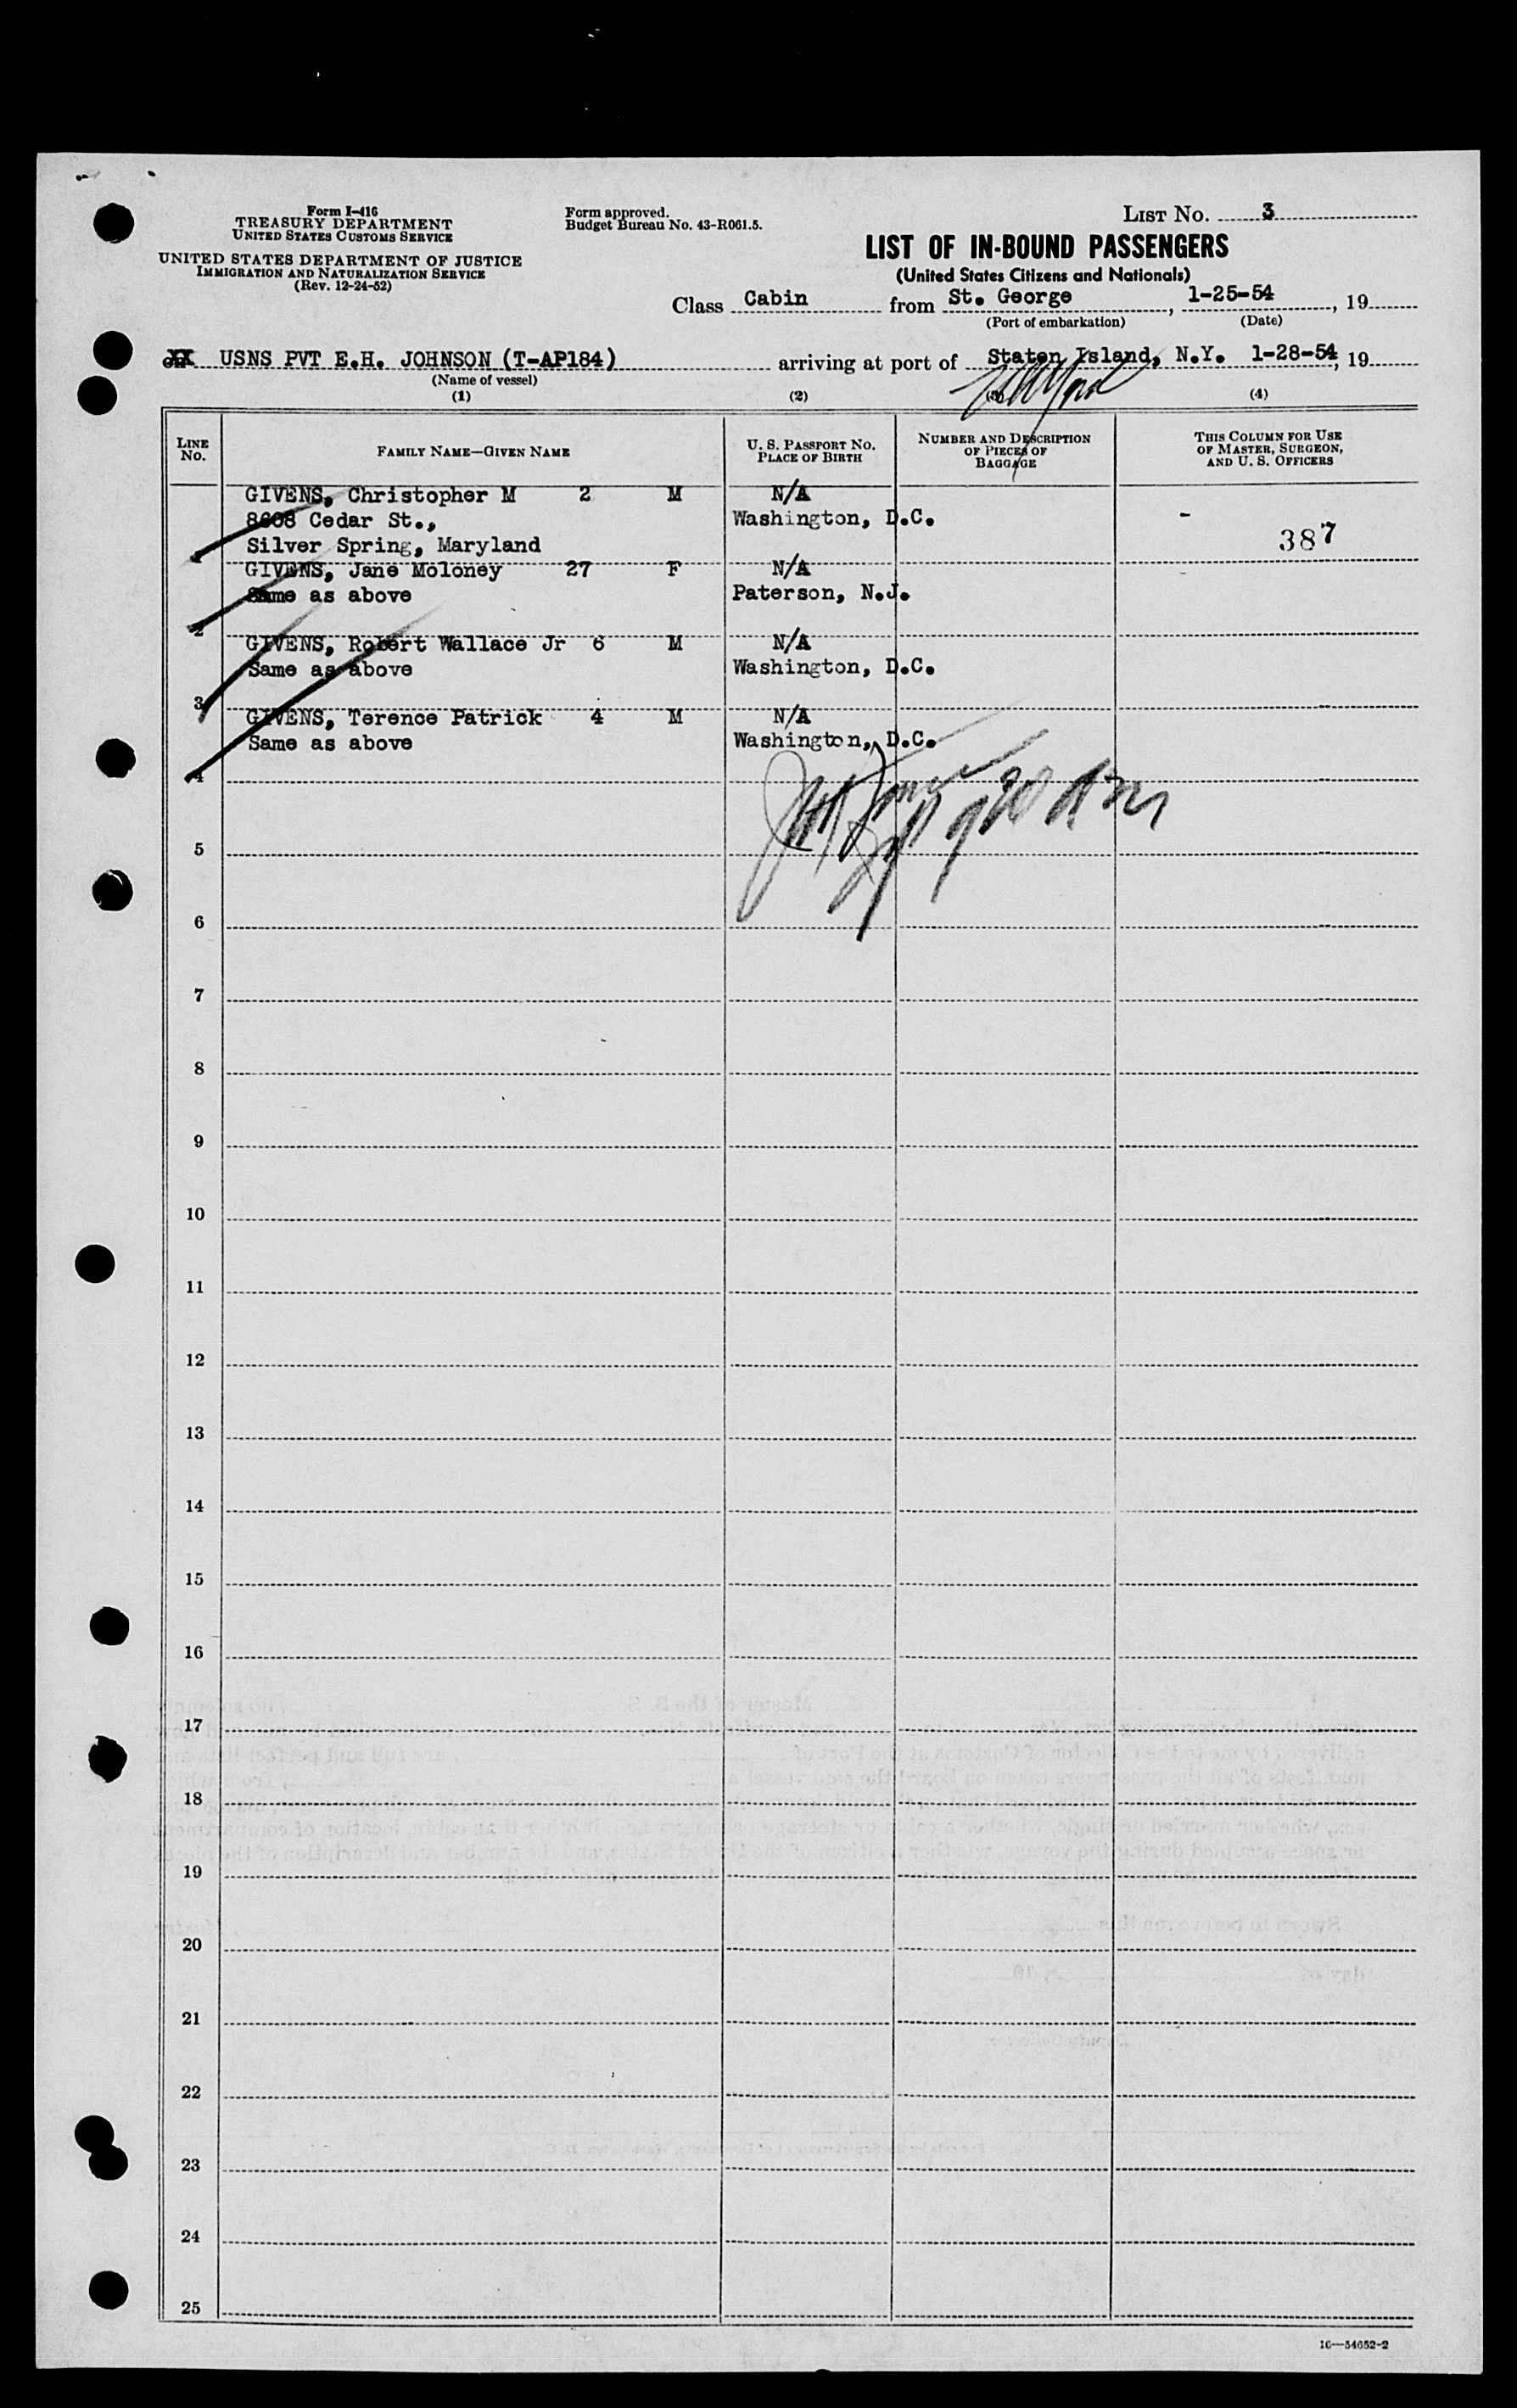 Form I-416
TREASURY DEPARTMENT
UNITED STATES CUSTOMS SERVICE
UNITED STATES DEPARTMENT OF JUSTICE
IMMIGRATION AND NATURALIZATION SERVICE
(Rev. 12-24-52)
Form approved.
Budget Bureau No. 43-R061.5.
LIST No. 3
LIST OF IN-BOUND PASSENGERS
(United States Citizens and Nationals)
Class Cabin from St. George, 1-25-54, 19
(Port of embarkation) (Date)
on XX USNS PVT E.H. JOHNSON (T-AP184) arriving at port of Staten Island, N.Y. 1-28-54, 19
(Name of vessel)
(1) (2) (3) (4)
LINE No. FAMILY NAME—GIVEN NAME U. S. PASSPORT NO. PLACE OF BIRTH NUMBER AND DESCRIPTION OF PIECES OF BAGGAGE THIS COLUMN FOR USE OF MASTER, SURGEON, AND U. S. OFFICERS
GIVENS, Christopher M 2 M N/A
8608 Cedar St., Washington, D.C. -
1 Silver Spring, Maryland 387
GIVENS, Jane Moloney 27 F N/A
Same as above Paterson, N.J.
2
GIVENS, Robert Wallace Jr 6 M N/A
Same as above Washington, D.C.
3
GIVENS, Terence Patrick 4 M N/A
Same as above Washington, D.C.
4
5
6
7
8
9
10
11
12
13
14
15
16
17
18
19
20
21
22
23
24
25
16—54652-2